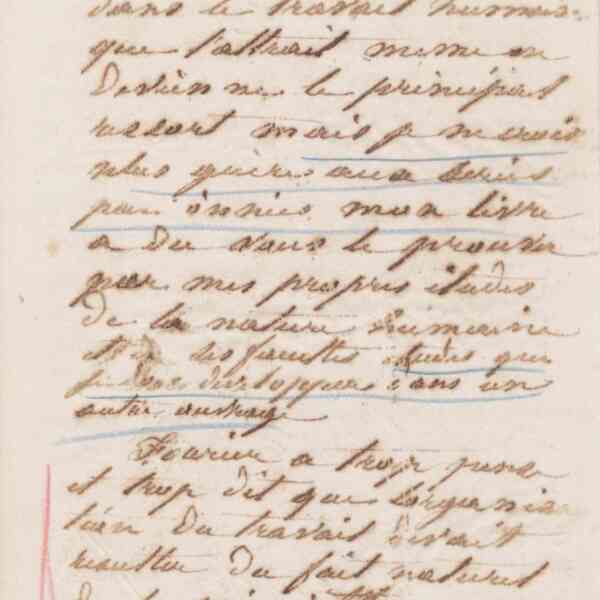 dans le travail humain
que l'attrait meme en
Devienne le principal
ressort mais je ne crois
plus guère aux series
passionnées mon livre
a du vous le prouver
par mes propres études
de la nature humaine
et de ses facultés études que
je dois developper dans un
autre ouvrage
Fourier a trop pensé
et trop dit que l'organisa
tion du travail devait
resulter du fait naturel